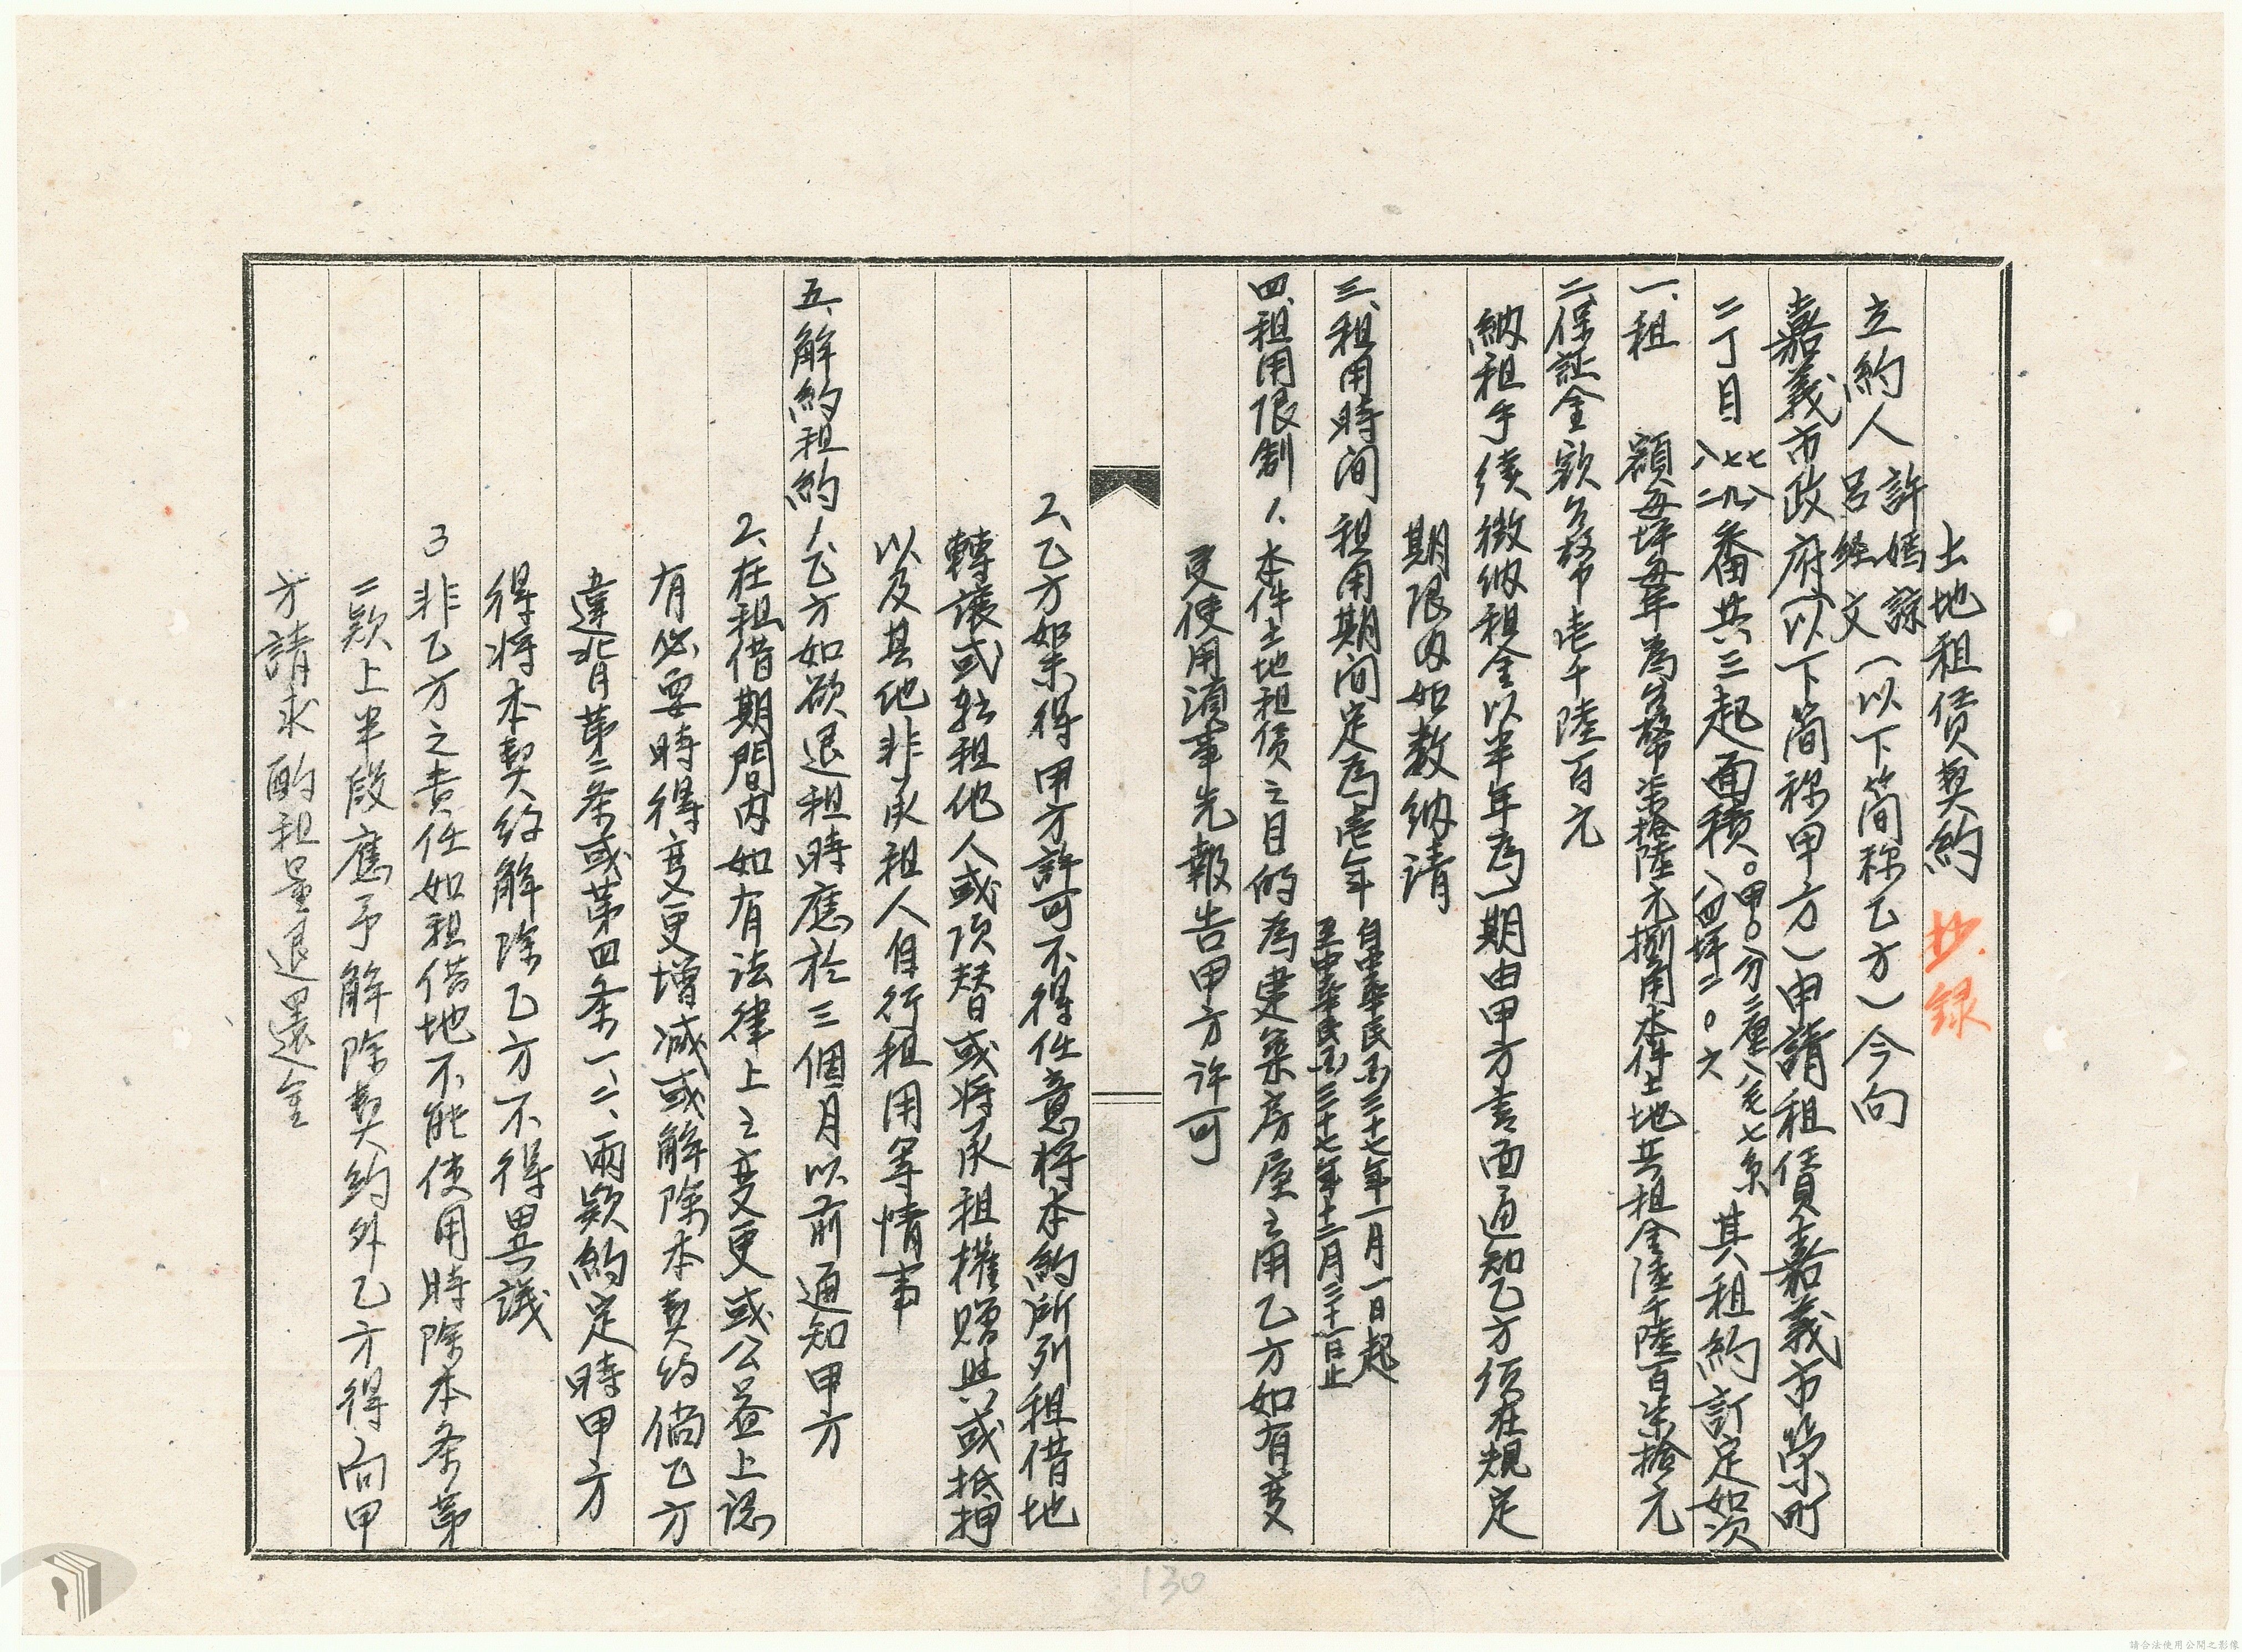 土地租賃契約 抄录
立約人 許媽諒 呂經文 (以下简称乙方) 今向
嘉義市政府(以下简称甲方)申請租賃嘉義市榮町
二丁目 七八 七九 八二 番共三起面積。甲。分二厘八毛七糸 八四坪二。六 其租約訂定如次
一、租 額每坪每年為台幣柒拾陸元捌角本件土地共租金陸千陸百柒拾元
二、保証金欵台幣壱千陸百元
納租手續徵納租金以半年為一期由甲方書面通知乙方須在規定
期限內如数納清
三、租用時间 租用期间定為壱年 自中華民国三十七年一月一日起 至中華民国三十七年十二月三十一日止
四、租用限制 1、本件土地租賃之目的為建築房屋之用乙方如有变
更使用須事先報告甲方许可
2、乙方如未得甲方許可不得任意将本約所列租借地
轉讓或転租他人或頂替或将承租權贈與或抵押
以及其他非承租人自行租用等情事
五、解約租約 1、乙方如欲退租時應於三個月以前通知甲方
2、在租借期間內如有法律上之变更或公益上認
有必要時得变更增减或解除本契约倘乙方
違背苐二条或苐四条一、二、兩欵約定時甲方
得将本契约解除乙方不得異議
3 非乙方之責任如租借地不能使用時除本条苐
二欵上半段應予解除契約外乙方得向甲
方請求酌租量退還金
130
請合法使用公開之影像